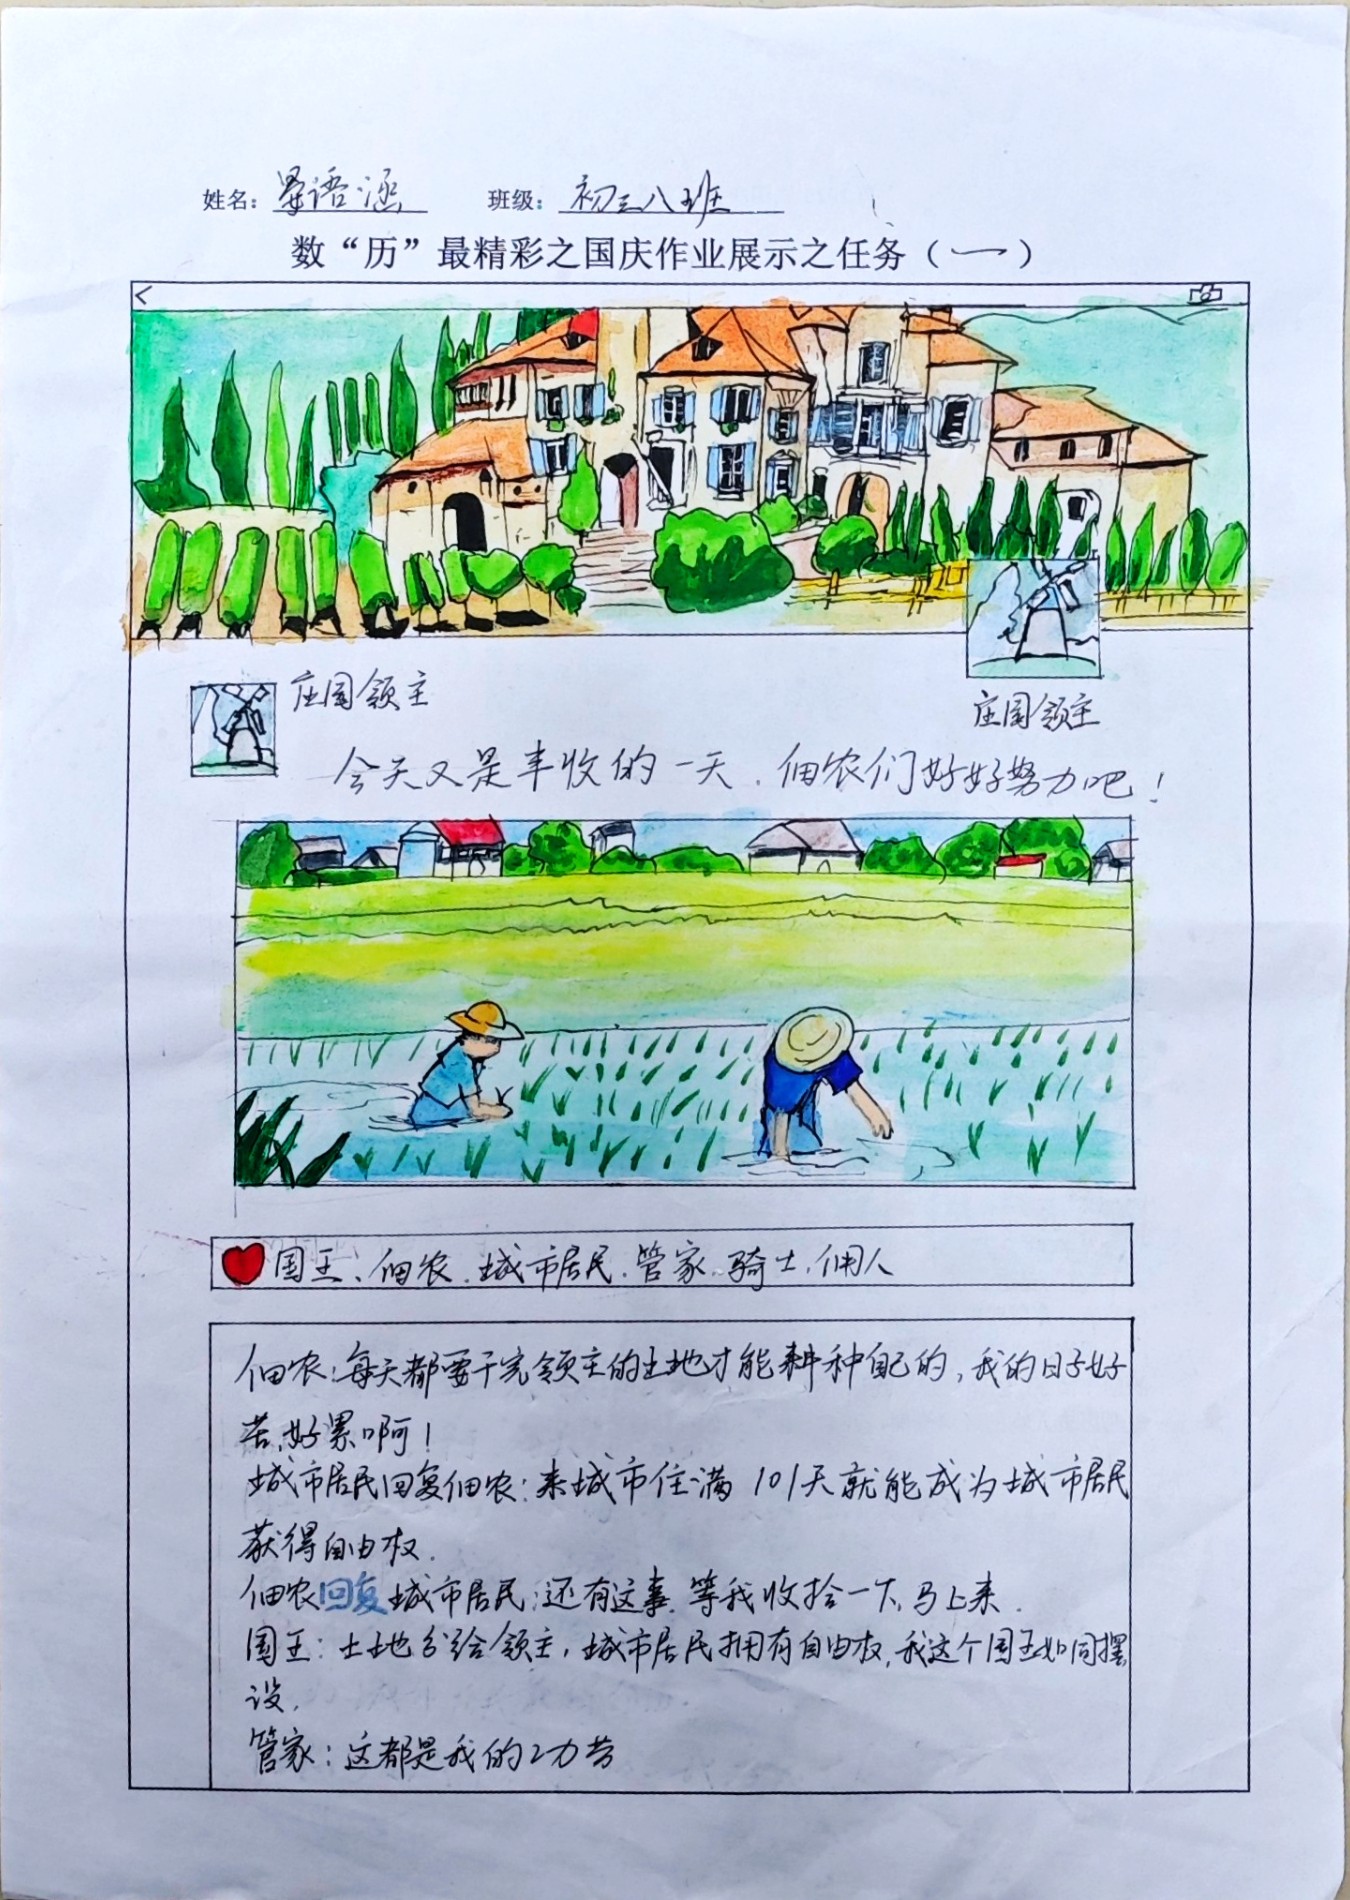 姓名：晏语涵 班级：初三八班
数“历”最精彩之国庆作业展示之任务（一）
庄园领主
庄园领主
今天又是丰收的一天，佃农们好好努力吧！
国王、佃农、城市居民、管家、骑士、佣人
佃农：每天都要干完领主的土地才能耕种自己的，我的日子好
苦，好累啊！
城市居民回复佃农：来城市住满101天就能成为城市居民
获得自由权．
佃农回复城市居民：还有这事，等我收拾一下，马上来．
国王：土地分给领主，城市居民拥有自由权，我这个国王如同摆
设．
管家：这都是我的功劳